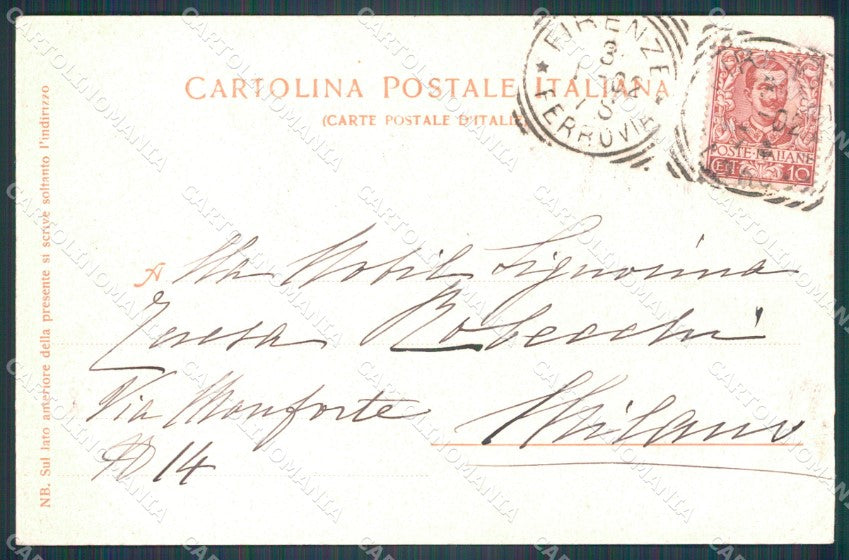 CARTOLINA POSTALE ITALIANA
(CARTE POSTALE D'ITALI
FIRENZE
FERROVIA
POSTE ITALIANE
10
A
Alla Nobil Signorina
Teresa Robecchi
Via Monforte
N 14
Milano
NB. Sul lato anteriore della presente si scrive soltanto l'indirizzo
CARTOLINOMANIA